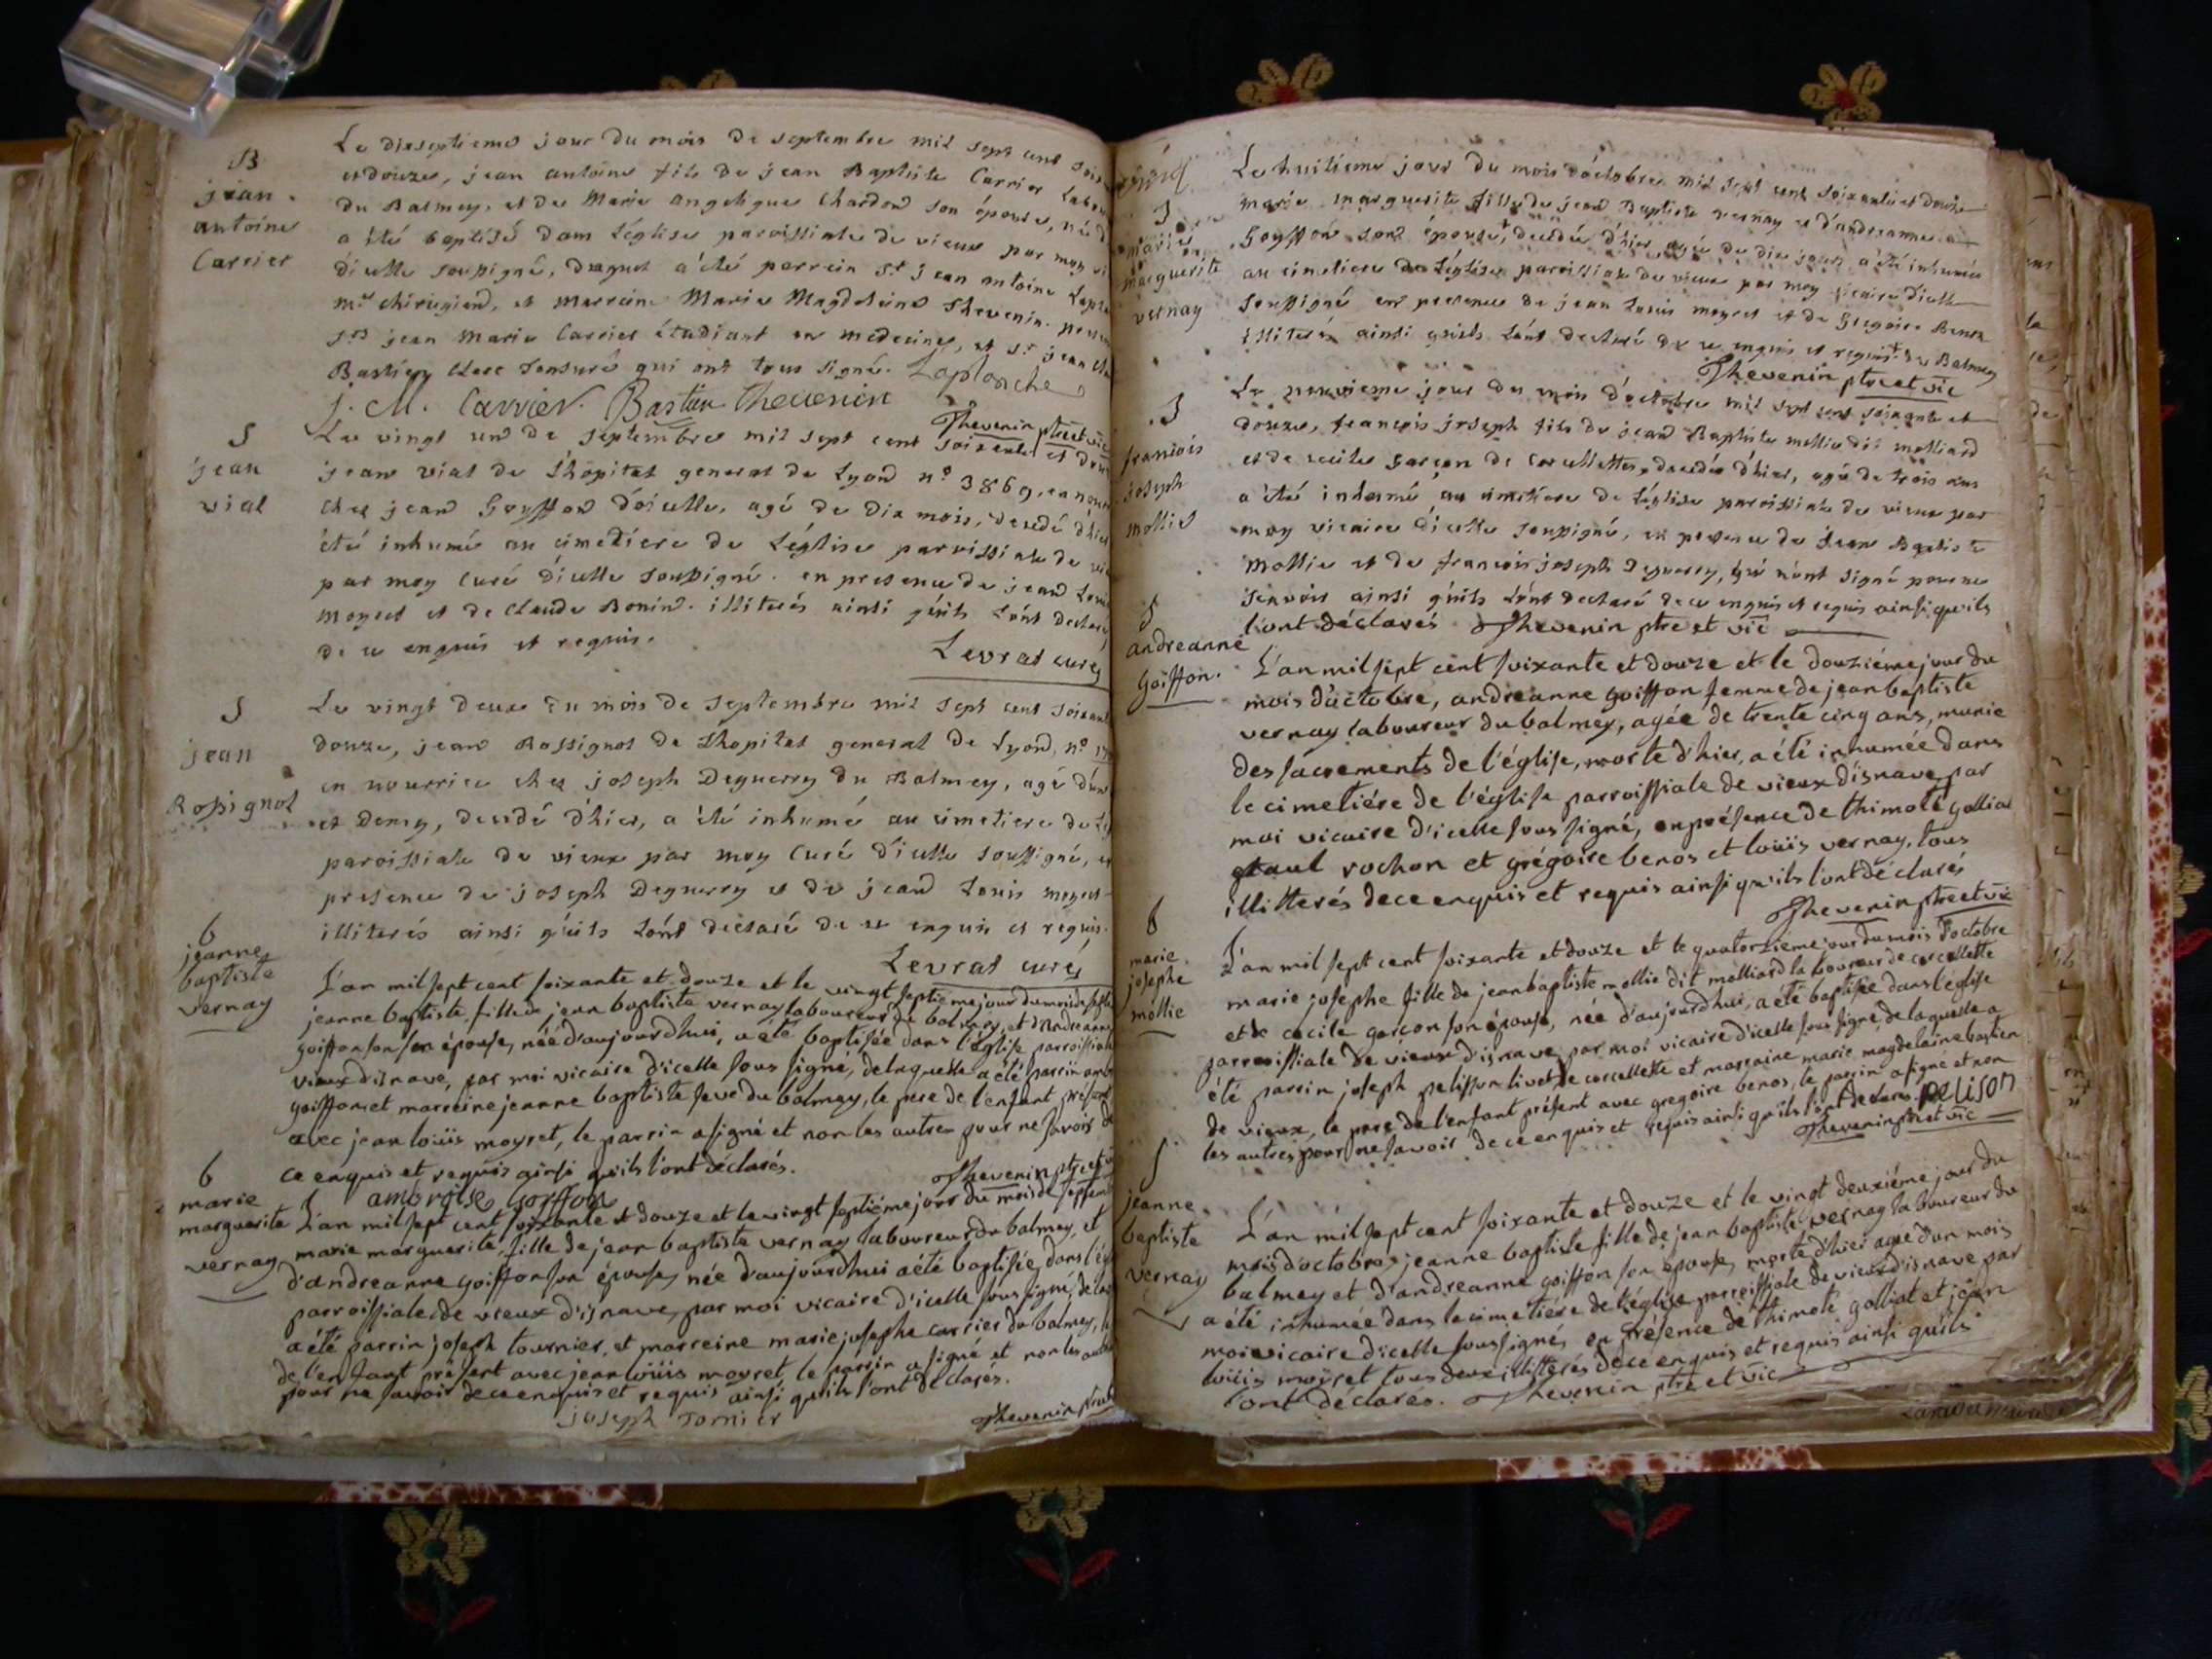 B
jean
antoine
Carrier
Le dixseptieme jour du mois de septembre mil sept cent
et douze, jean antoine fils de jean Baptiste Carrier
du Balmey, et de Marie angelique Chardon son épouse,
a été baptisé dans L'église paroissiale de vieux par moy
d'icelle soussigné, duquel a été parrein Sr jean antoine
me chirugien, et marreine Marie Magdeleine Thevenin
jean Marie Carrier étudiant en medecine, et Sr jean
Bastien clerc tonsuré qui ont tous signé. Laplanche
J. M. Carrier. Bastien Thevenin
Thevenin ptre et vic
S
jean
vial
Le vingt un de septembre mil sept cent soixante et
jean vial de L'hopital general de Lyon n° 3869, en
chez jean Goyffon d'icelle, agé de dix mois, decedé d'hier
été inhumé au cimetiere de L'église paroissiale de
par moy Curé d'icelle soussigné. en presence de jean
moyret et de Claude Bonin. illiterés ainsi qu'ils L'ont
de ce enquis et requis.
Levrat curé
S
jean
Rossignol
Le vingt deux du mois de septembre mil sept cent
douze, jean Rossignol de L'hopital general de Lyon, n°
en nourrice chez joseph Deguerry du Balmey, agé d'un
et demy, decedé d'hier, a été inhumé au cimetiere de
paroissiale de vieux par moy Curé d'icelle soussigné,
presence de joseph Deguerry et de jean Louis moyret
illiterés ainsi qu'ils L'ont declaré de ce enquis et requis.
Levrat curé
b
jeanne
baptiste
vernay
L'an mil sept cent soixante et douze et le vingt septieme jour du mois de
jeanne baptiste, fille de jean baptiste vernay laboureur de balmey, et d'andreanne
goiffon son épouse, née d'aujourdhui, a été baptisée dans l'église parroissiale
vieux d'isnave, par moi vicaire d'icelle sous signé, de laquelle a été parrin
goiffon et marreine jeanne baptiste seve du balmey, le pere de l'enfant présent
avec jean loüis moyret, le parrin a signé et non les autres pour ne savoir
ce enquis et requis ainsi qu'ils l'ont déclarés.
Thevenin ptre et
amb goiffon
b
marie
marguerite
vernay
L'an mil sept cent soixante et douze et le vingt septiéme jour du mois de
marie marguerite, fille de jean baptiste vernay laboureur du balmey, et
d'andreanne goiffon son épouse, née d'aujourdhui a été baptisée, dans
parroissiale de vieux d'isnave, par moi vicaire d'icelle sous signé,
a été parrin joseph tournier, et marreine marie josephe carrier du balmey,
de l'enfant présent avec jean loüis moyret, le parrin a signé et non les
pour ne savoir de ce enquis et requis ainsi qu'ils l'ont déclarés.
joseph Tornier
Thevenin
S
marie
marguerite
vernay
Le huitiéme jour du mois d'octobre mil sept cent soixante et douze
marie marguerite fille de jean Baptiste vernay et d'andreanne
Goyffon son épouse, decedée d'hier agée de dix jours a été inhumée
au cimetiere de L'église paroissiale de vieux par moy vicaire d'icelle
soussigné en presence de jean Louis moyret et de Gregoire Benos
illiterés ainsi qu'ils L'ont declaré de ce enquis et requis + du Balmey
Thevenin ptre et vic
S
francois
joseph
mollie
Le neuvieme jour du mois d'octobre mil sept cent soixante et
douze, francois joseph fils de jean Baptiste mollie dit molliard
et de cecile Garçon de Corcellette, decedé d'hier, agé de trois ans
a été inhumé au cimetiere de L'église paroissiale de vieux par
moy vicaire d'icelle soussigné, en presence de jean Baptiste
Mollie et de francois joseph Deguerry, qui n'ont signé pour ne
scavoir ainsi qu'ils L'ont declaré de ce enquis et requis ainsi qu'ils
l'ont déclarés Thevenin ptre et vic
S
andreanne
Goiffon.
L'an mil sept cent soixante et douze et le douziéme jour du
mois d'octobre, andreanne goiffon femme de jean baptiste
vernay laboureur du balmey, agée de trente cinq ans, munie
des sacrements de l'église, morte d'hier, a été inhumée dans
le cimetiére de l'église parroissiale de vieux d'isnave par
moi vicaire d'icelle sous signé, en présence de thimoté golliat
paul rochon et grégoire benos et loüis vernay, tous
illitterés de ce enquis et requis ainsi qu'ils l'ont déclarés
Thevenin ptre et vic
b
marie
josephe
mollie
L'an mil sept cent soixante et douze et le quatorzieme jour du mois d'octobre
marie josephe fille de jean baptiste mollie dit molliard laboureur de corcellette
et de cecile garçon son épouse, née d'aujourdhui, a été baptisée dans l'eglise
parroissiale de vieux d'isnave par moi vicaire d'icelle sous signé, de laquelle a
été parrin joseph pelisson livet de corcellette et marraine marie magdelaine bastien
de vieux, le pere de l'enfant présent avec gregoire benos, le parrin a signé et non
les autres pour ne savoir de ce enquis et requis ainsi qu'ils l'ont declarés. PeLiSon
Thevenin ptre et vic
S
jeanne
baptiste
vernay
L'an mil sept cent soixante et douze et le vingt deuxiéme jour du
mois d'octobre, jeanne baptiste fille de jean baptiste vernay laboureur du
balmey et d'andreanne goiffon son épouse, morte d'hier agée d'un mois
a été inhumée dans le cimetiére de l'église parroissiale de vieux d'isnave par
moi vicaire d'icelle soussigné, en présence de thimoté golliat et jean
loüis moyret tous deux illitterés de ce enquis et requis ainsi qu'ils
l'ont déclarés. Thevenin ptre et vic